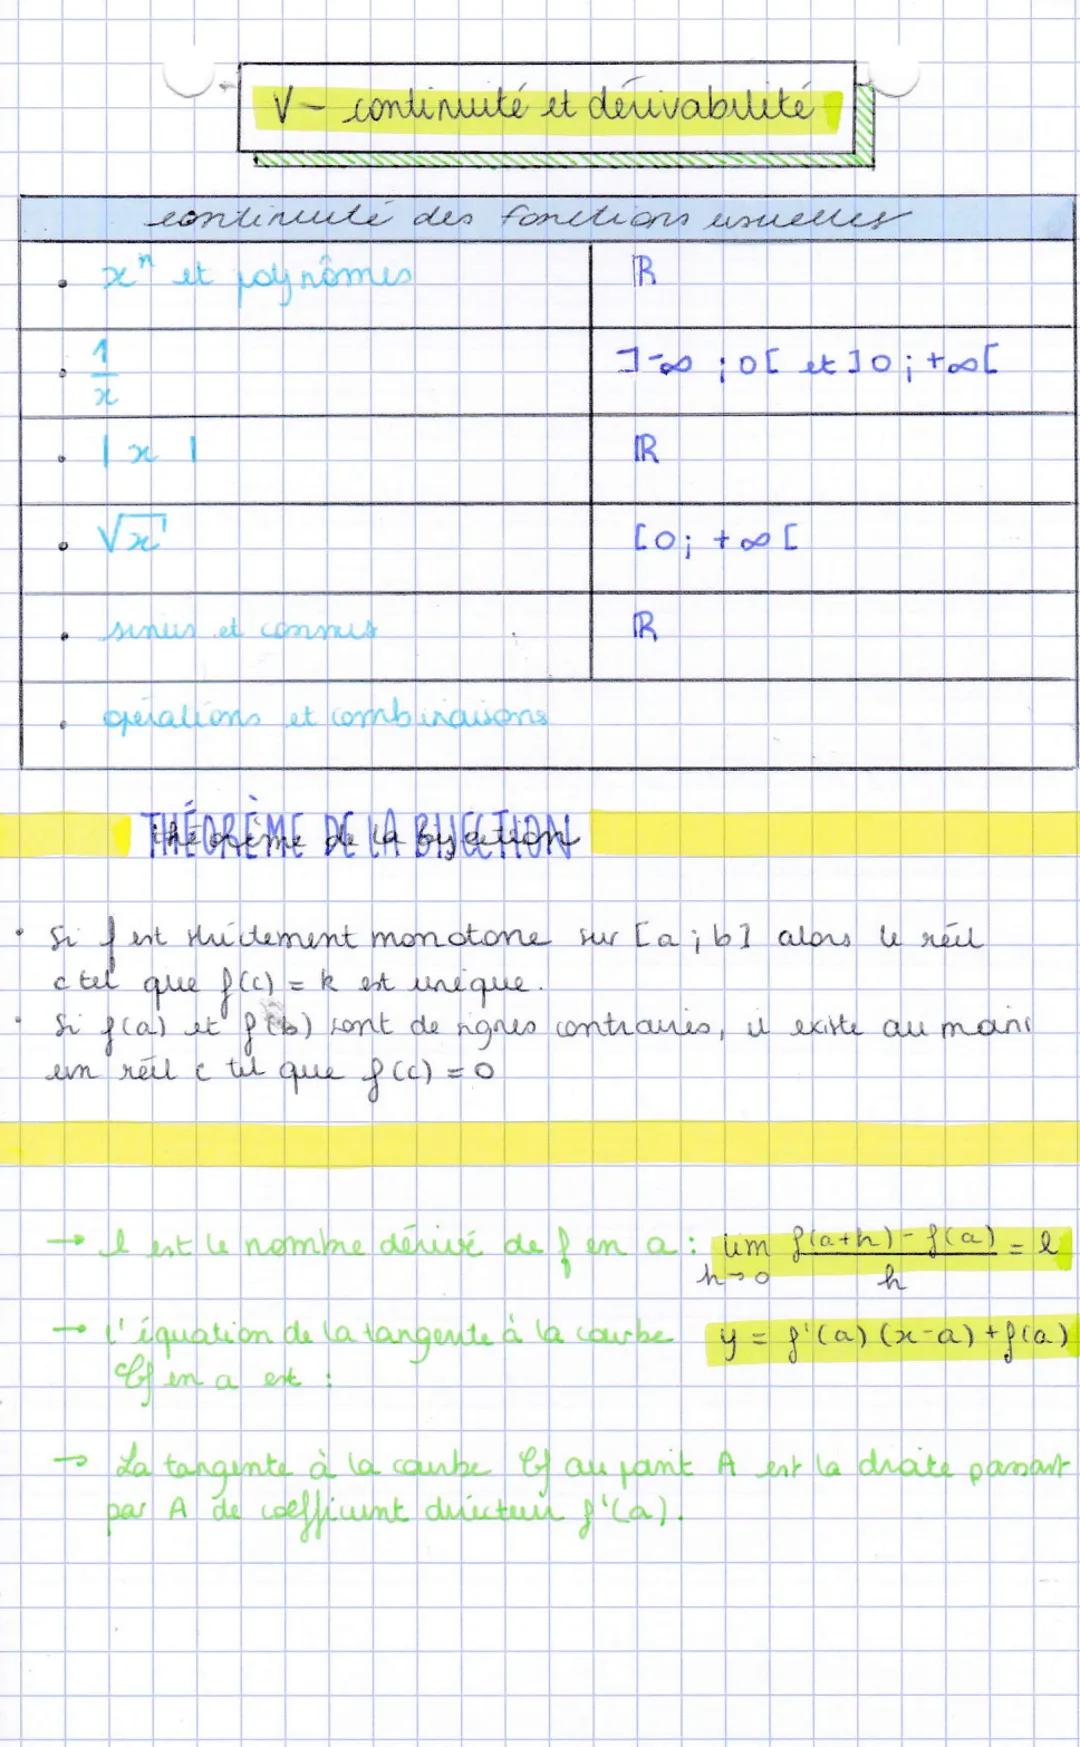 V - continuité et dérivabilité
continuité des fonctions usuelles
• xⁿ et polynômes ℝ
• 1/x ]-∞ ; 0[ et ]0 ; +∞[
• |x| ℝ
• √x [0 ; +∞[
• sinus et cosinus ℝ
• opérations et combinaisons
THÉORÈME DE LA BIJECTION
théorème de la bijection
• Si f est strictement monotone sur [a ; b] alors le réel
c tel que f(c) = k est unique.
• Si f(a) et f(b) sont de signes contraires, il existe au moins
un réel c tel que f(c) = 0
→ l est le nombre dérivé de f en a : lim h→0 f(a+h) - f(a) / h = l
→ l'équation de la tangente à la courbe y = f'(a) (x-a) + f(a)
Cf en a est :
→ La tangente à la courbe Cf au point A est la droite passant
par A de coefficient directeur f'(a).